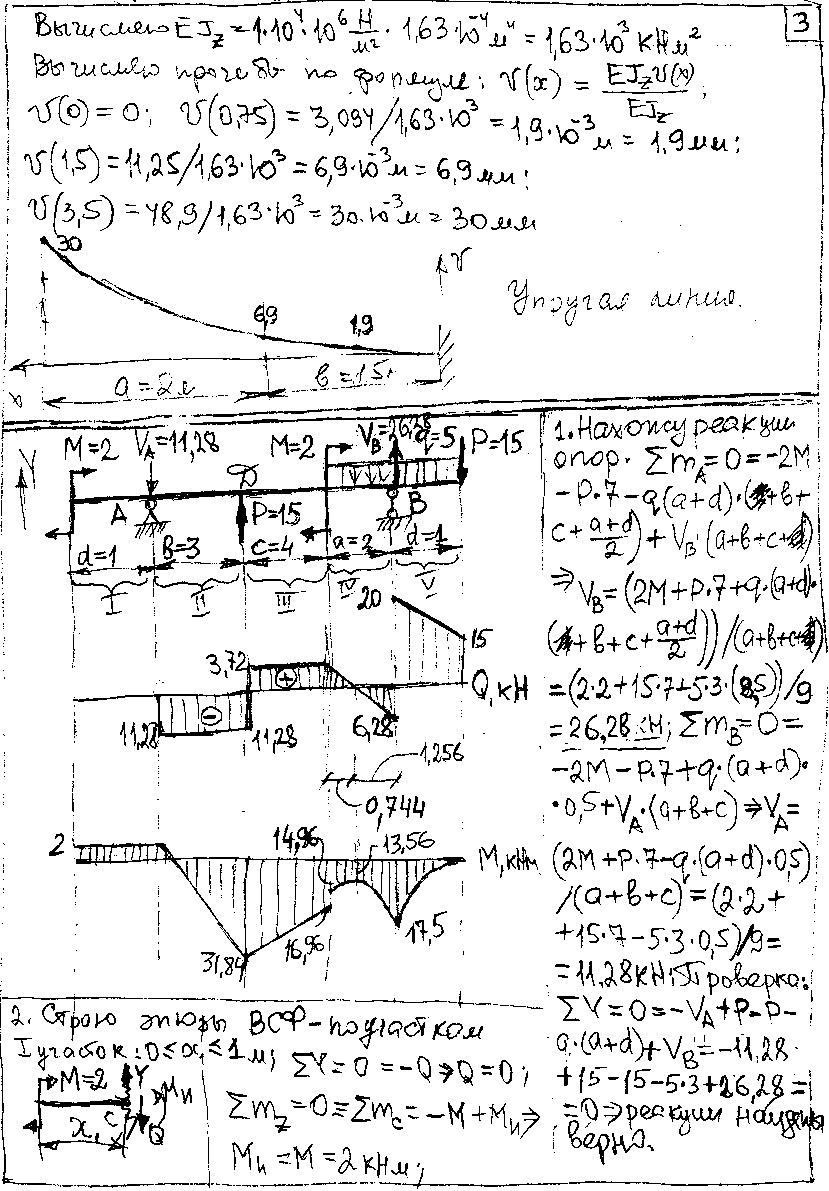 3
Вычисляю EJz = 1·10⁴·10⁶ Н/м² · 1,63·10⁻⁴ м⁴ = 1,63·10³ кНм²
Вычисляю прогебы по формуле: V(x) = EJzV(x)/EJz;
V(0) = 0; V(0,75) = 3,094/1,63·10³ = 1,9·10⁻³ м = 1,9 мм;
V(1,5) = 11,25/1,63·10³ = 6,9·10⁻³ м = 6,9 мм;
V(3,5) = 48,9/1,63·10³ = 30·10⁻³ м = 30 мм
30
V
Упругая линия.
6,9
1,9
x
a = 2 м
в = 1,5
Y
M=2
VA=11,28
D
M=2
VB=26,28
q=5
P=15
A
P=15
B
d=1
в=3
c=4
a=2
d=1
I
II
III
IV
V
20
15
3,72
+
Q, кН
11,28
−
11,28
6,28
1,256
0,744
2
14,96
13,56
M, кНм
31,84
16,96
17,5
1. Нахожу реакции
опор. ΣmA=0=-2M
-P·7-q(a+d)·(в+
c+(a+d)/2)+VB·(a+в+c)
⇒ VB=(2M+P·7+q·(a+d)·
(в+c+(a+d)/2))/(a+в+c)
=(2·2+15·7+5·3·(8,5))/9
=26,28 кН; ΣmB=0=
-2M-P·7+q·(a+d)·
·0,5+VA·(a+в+c)⇒VA=
(2M+P·7-q·(a+d)·0,5)
/(a+в+c)=(2·2+
+15·7-5·3·0,5)/9=
=11,28кН; Проверка:
ΣY=0=-VA+P-P-
q·(a+d)+VB=-11,28
+15-15-5·3+26,28=
=0⇒реакции найдены
верно.
2. Строю эпюры ВСФ-поучасткам
I участок: 0≤x₁≤1м; ΣY=0=-Q⇒Q=0;
M=2
Y
Mи
C
x₁
X
Q
Σmz=0=Σmc=-M+Mи⇒
Mи=M=2кНм;